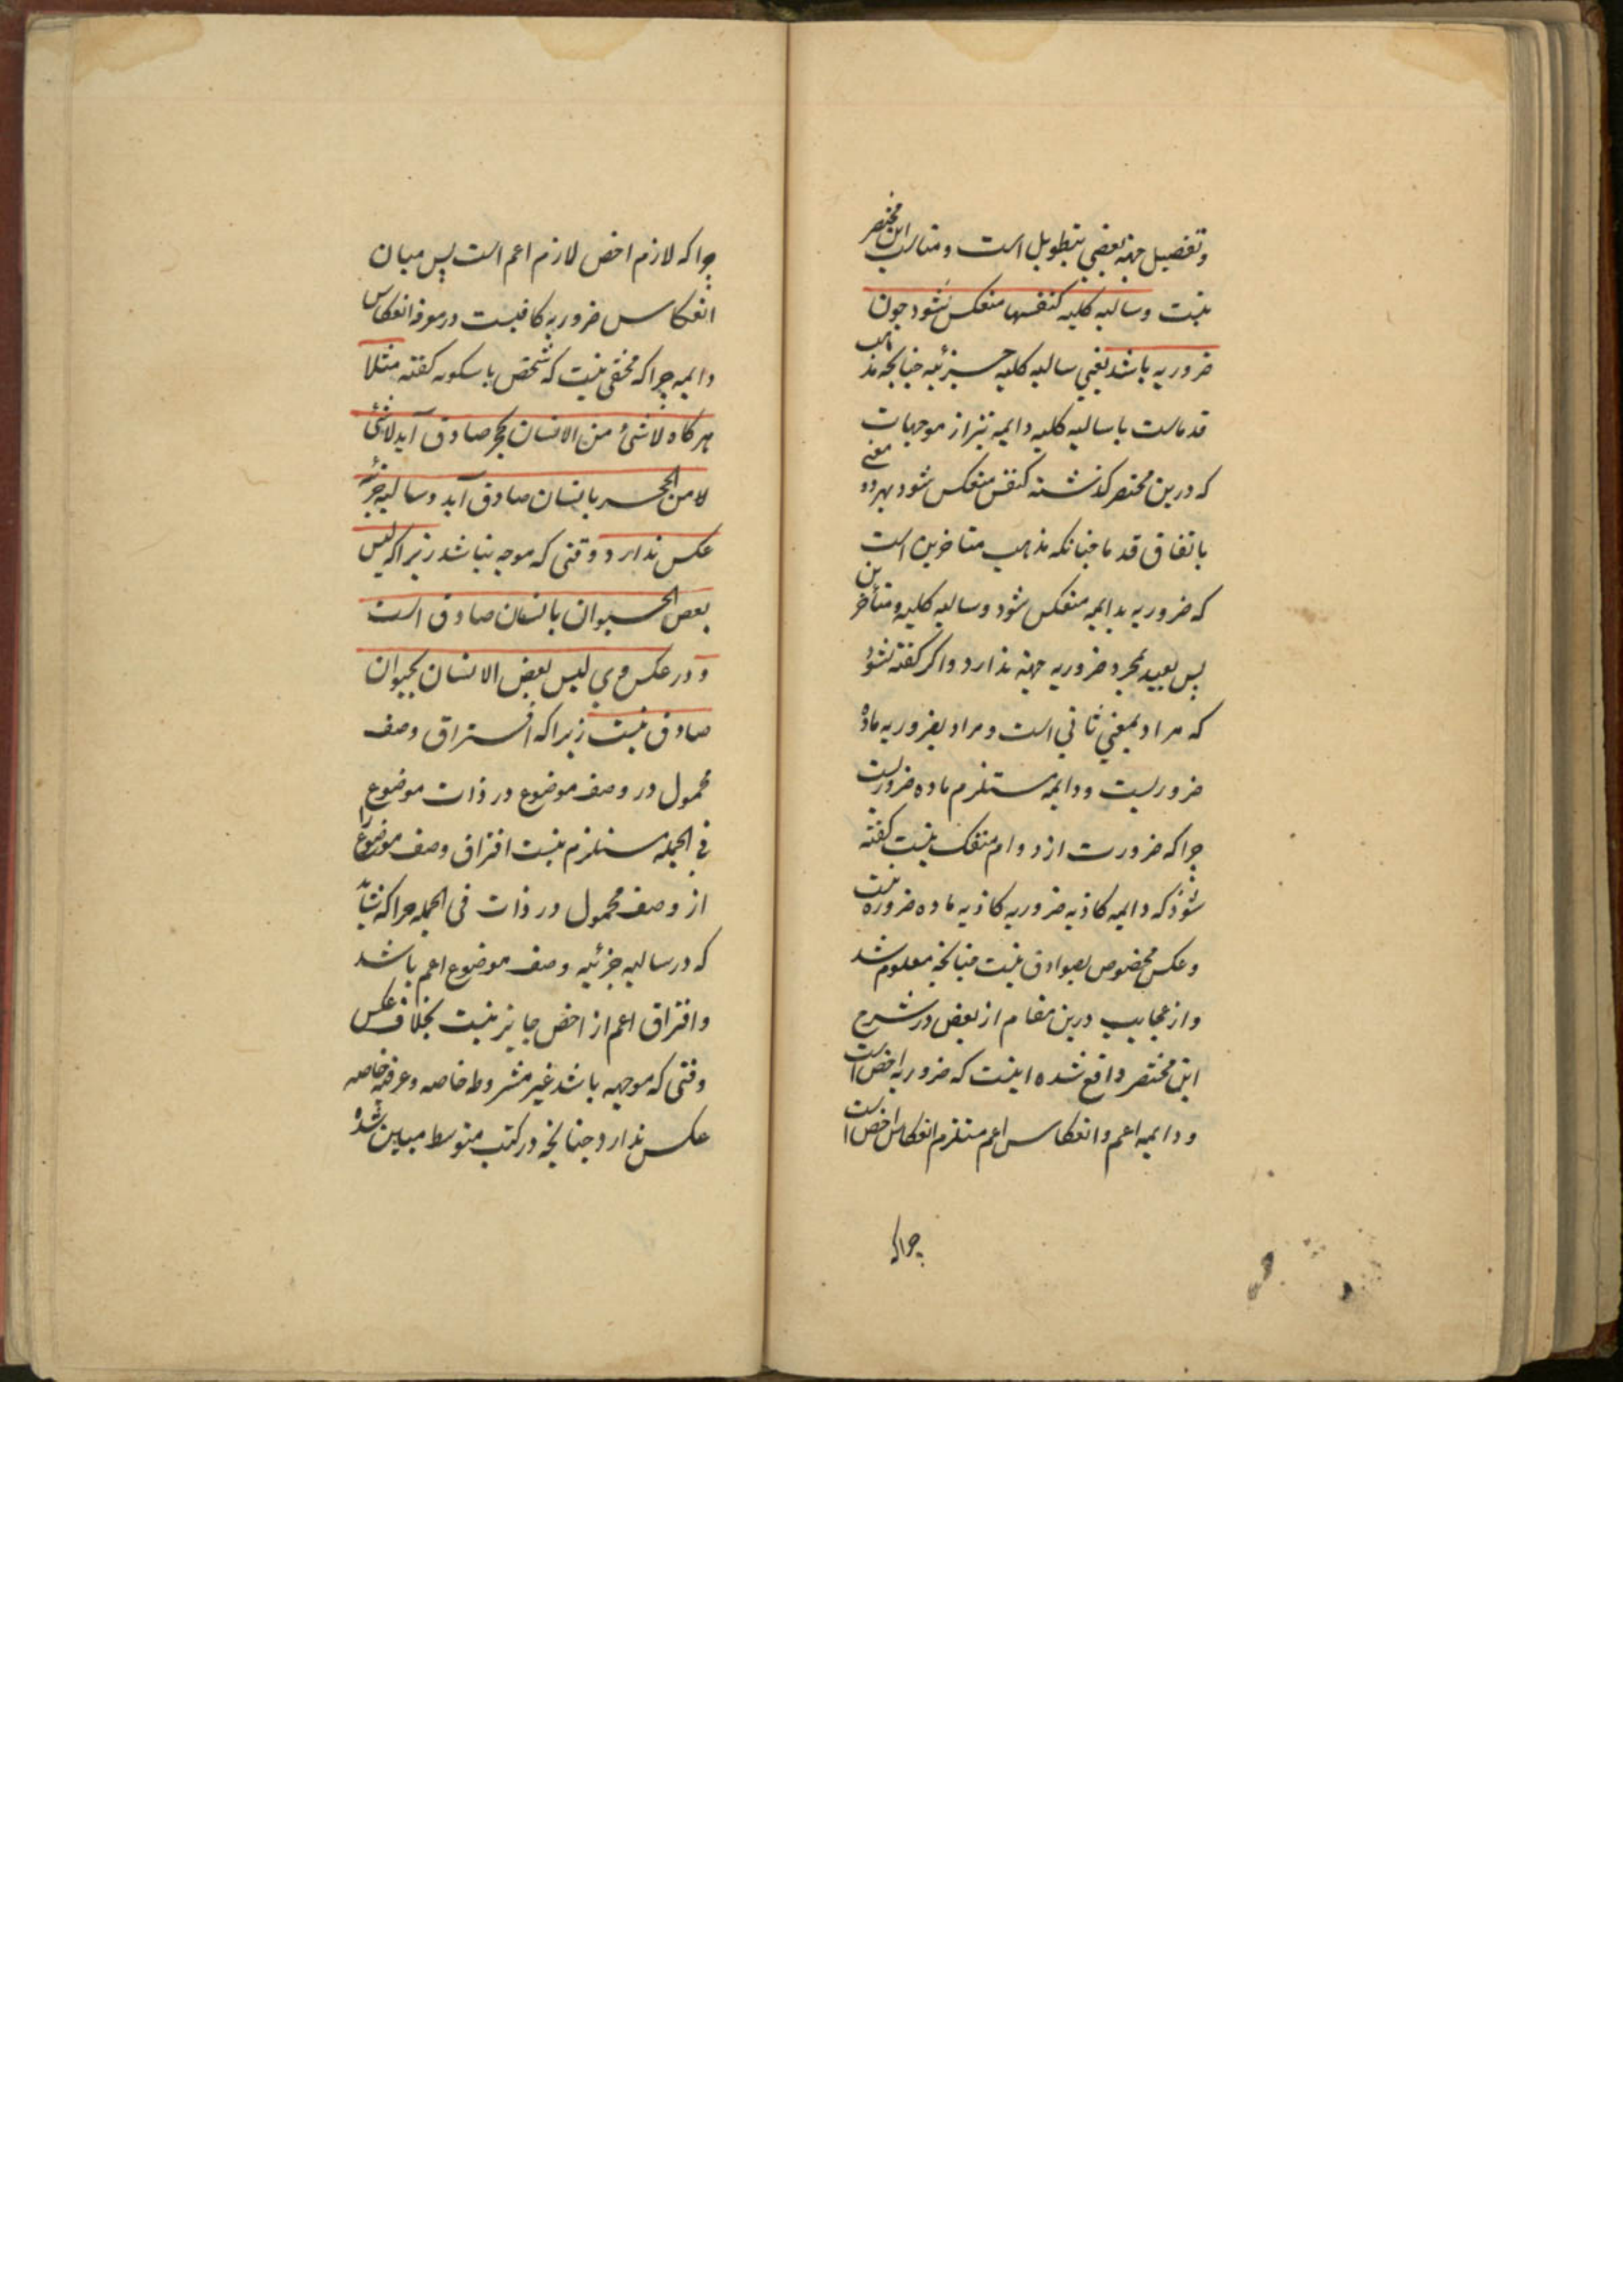 وتفصیل جهته بعضی بتطویل است ومناسب این مختصر
نیست وسالبه کلیه کنفسها منعکس شود چون
ضروریه باشد یعنی سالبه کلیه جزئیه چنانچه مذهب
قدماست یا سالبه کلیه دایمه نیز از موجهات
که درین مختصر کذشته کنفس منعکس شود بهر دو معنی
باتفاق قدما چنانکه مذهب متاخرین است
که ضروریه بدایمه منعکس شود وسالبه کلیه ومتأخرین
پس بعید بمجرد ضروریه جهته ندارد واکر کفته شود
که مراد بمعنی ثانی است ومراد بضروریه ماده
ضروریست ودایمه مستلزم ماده ضروریست
چراکه ضرورت از دوام منفک نیست کفته
شود که دایمه کاذبه ضروریه کاذبه ماده ضروره نیست
وعکس مخصوص بصوادق نیست چنانچه معلوم شد
واز عجایب درین مقام از بعض در شرح
این مختصر واقع شده اینست که ضروریه اخص است
ودایمه اعم وانعکاس اعم مستلزم انعکاس اخص است
چراکه
چراکه لازم اخص لازم اعم است پس میان
انعکاس ضروریه کافیست در معرفه انعکاس
دایمه چراکه مخفی نیست که شخص باسکونه کفته مثلا
هرکاه لاشئ من الانسان بحجر صادق آید لاشئ
لا من الحجر بانسان صادق آید وسالبه جزئیه
عکس ندارد وقتی که موجه نباشد زیراکه لیس
بعض الحیوان بانسان صادق است
ودر عکس وی لیس بعض الانسان بحیوان
صادق نیست زیراکه افتراق وصف
محمول در وصف موضوع در ذات موضوع
فی الجمله مستلزم نیست افتراق وصف موضوع را
از وصف محمول در ذات فی الجمله چراکه شاید
که در سالبه جزئیه وصف موضوع اعم باشد
وافتراق اعم از اخص جایز نیست بخلاف عکس
وقتی که موجهه باشد غیر مشروطه خاصه وعرفیه خاصه
عکس ندارد چنانچه در کتب متوسط مبین شده